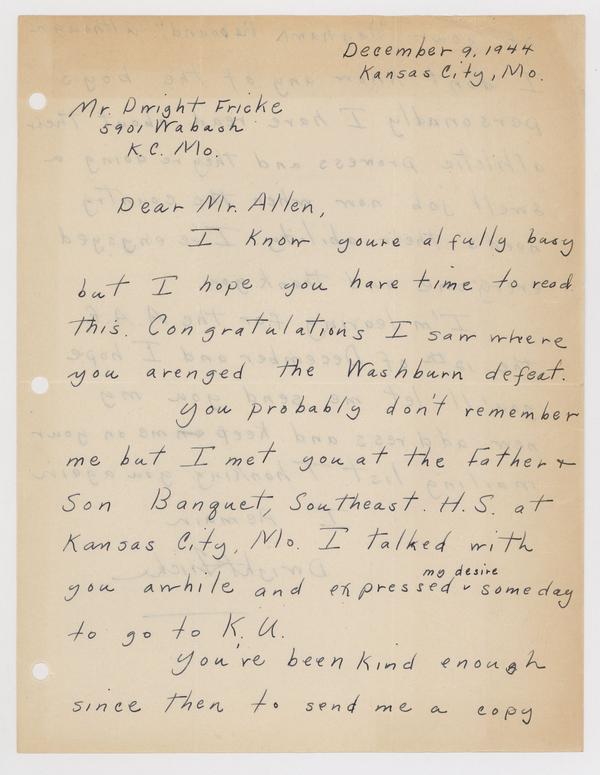 December 9, 1944
Kansas City, Mo.
Mr. Dwight Fricke
5901 Wabash
K.C. Mo.
Dear Mr. Allen,
I know youre alfully busy
but I hope you have time to read
this. Congratulations I saw where
you avenged the Washburn defeat.
You probably don't remember
me but I met you at the Father +
Son Banquet, Southeast. H.S. at
Kansas City, Mo. I talked with
my desire
you awhile and expressed ˅ someday
to go to K.U.
You've been kind enough
since then to send me a copy